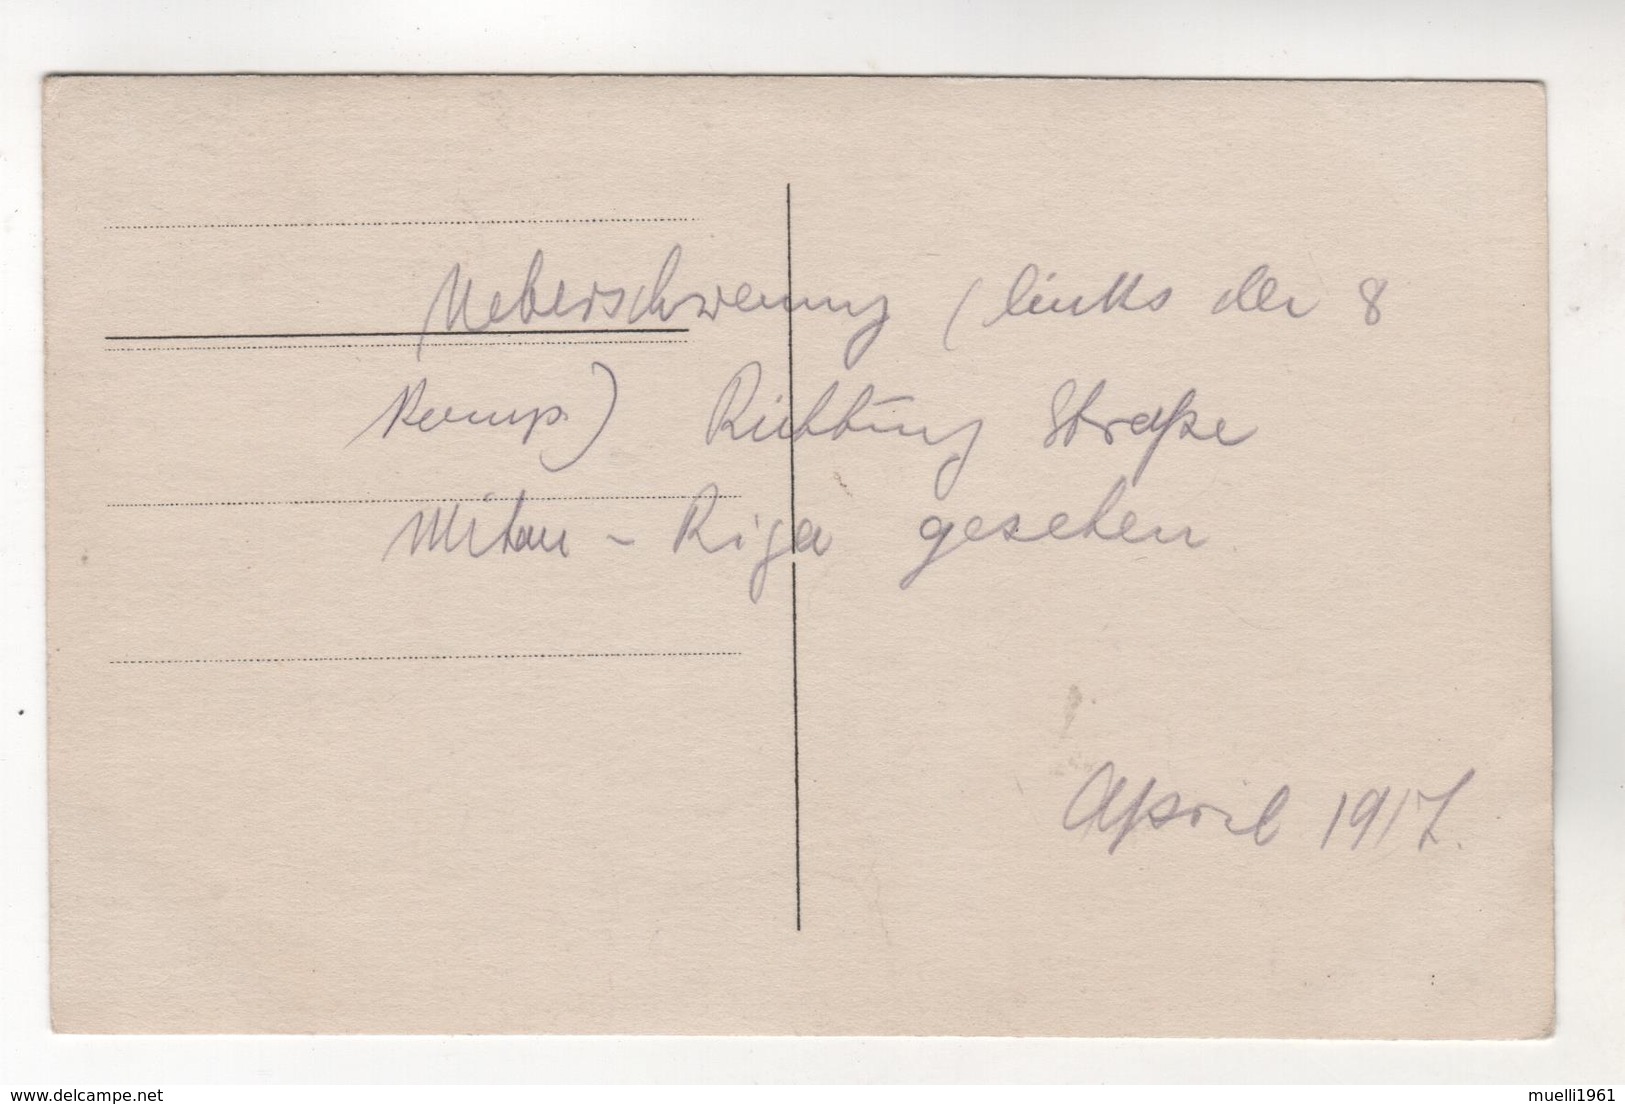 Ueberschwemmung (links der 8
Komp.) Richtung Straße
Mitau - Riga gesehen.
April 1917.
delcampe.net
muelli1961